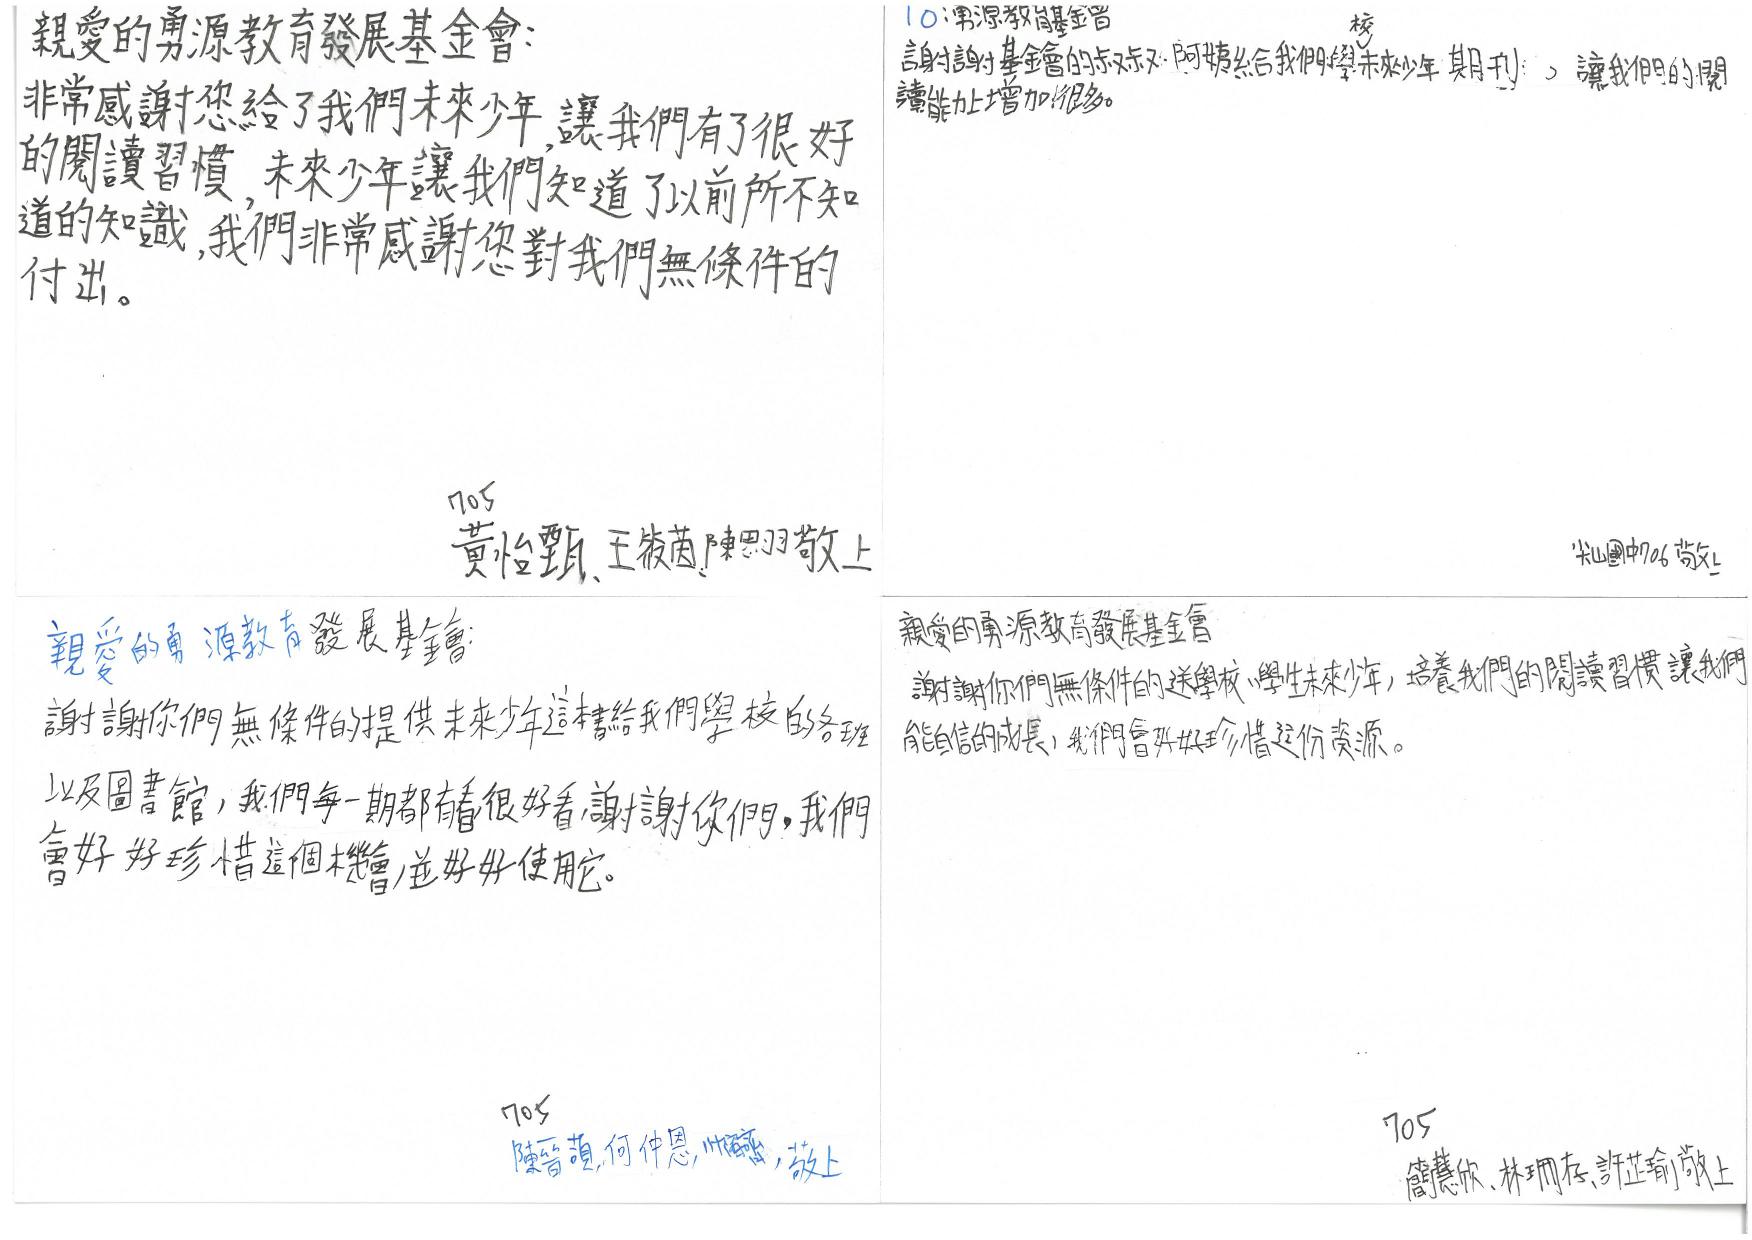 親愛的勇源教育發展基金會：
非常感謝您給了我們未來少年，讓我們有了很好
的閱讀習慣，未來少年讓我們知道了以前所不知
道的知識，我們非常感謝您對我們無條件的
付出。
705
黃怡甄、王筱茵、陳思羽敬上
TO：勇源教育基金會
校
謝謝基金會的叔叔、阿姨給我們學未來少年期刊，讓我們的閱
讀能力上增加很多。
尖山國中706敬上
親愛的勇源教育發展基金會：
謝謝你們無條件的提供未來少年這本書給我們學校的各班
以及圖書館，我們每一期都有看很好看，謝謝你們，我們
會好好珍惜這個機會，並好好使用它。
705
陳晉蘋，何仲恩，敬上
親愛的勇源教育發展基金會
謝謝你們無條件的送學校、學生未來少年，培養我們的閱讀習慣讓我們
能自信的成長，我們會好好珍惜這份資源。
705
簡慧欣、林珊存、許芷瑜敬上